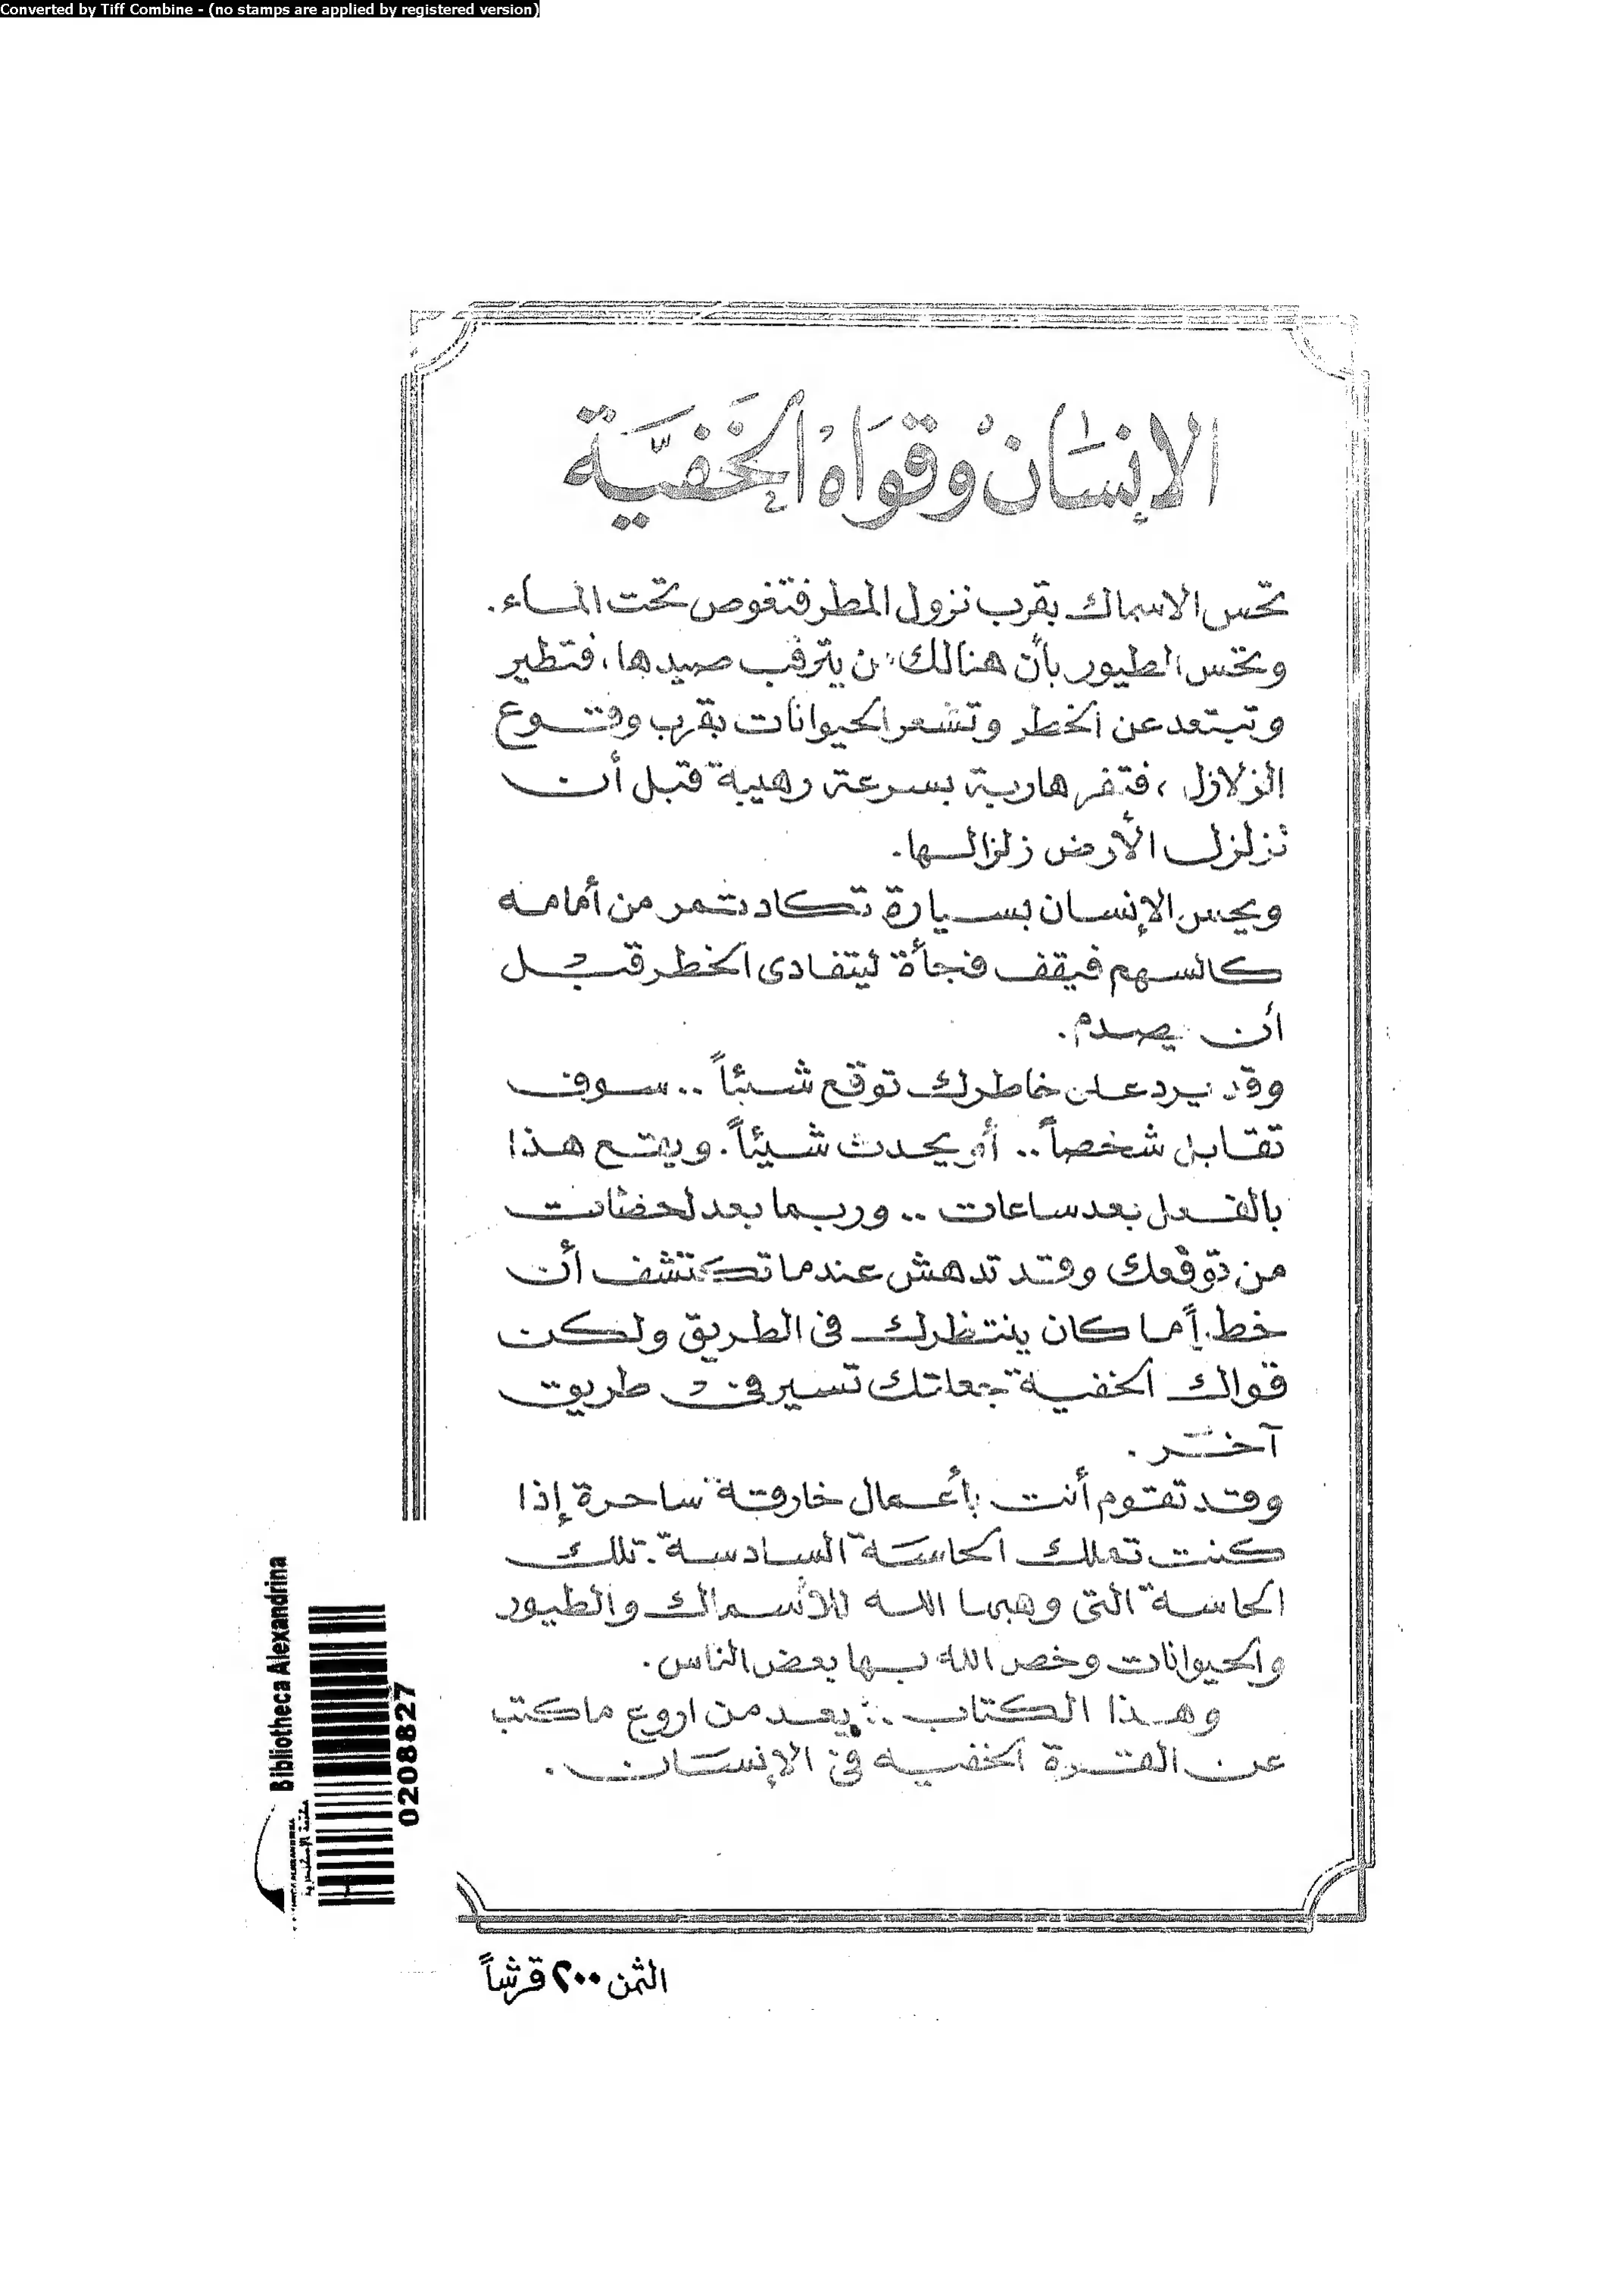 Converted by Tiff Combine - (no stamps are applied by registered version)
الإنسَان وقوَاه الخَفيَّة
تحس الاسماك بقرب نزول المطر فتغوص تحت المـاء .
وتحس الطيور بأن هنالك من يترقب صيدها، فتطير
وتبتعد عن الخطر وتشعر الحيوانات بقرب وقـوع
الزلازل ، فتفر هاربة بسرعة رهيبة قبل أن
تزلزل الأرض زلزالها.
ويحس الإنسان بسيارة تكاد تمر من أمامه
كالسهم فيقف فجأة ليتفادى الخطر قبل
أن يصدم .
وقد يرد على خاطرك توقع شيئاً .. سوف
تقابل شخصاً .. أو يحدث شيئاً . ويقع هذا
بالفعل بعد ساعات .. وربما بعد لحظات
من توقعك وقد تدهش عندما تكتشف أن
خطراً ما كان ينتظرك فى الطريق ولكن
قواك الخفية جعلتك تسير فى طريق
آخر .
وقد تقوم أنت بأعمال خارقة ساحرة إذا
كنت تملك الحاسة السادسة . تلك
الحاسة التى وهبها الله للأسماك والطيور
والحيوانات وخص الله بها بعض الناس .
وهذا الكتاب .. يعد من اروع ما كتب
عن القدرة الخفيه فى الإنسان .
الثمن ٢٠٠ قرشاً
Bibliotheca Alexandrina
مكتبة الإسكندرية
0208827